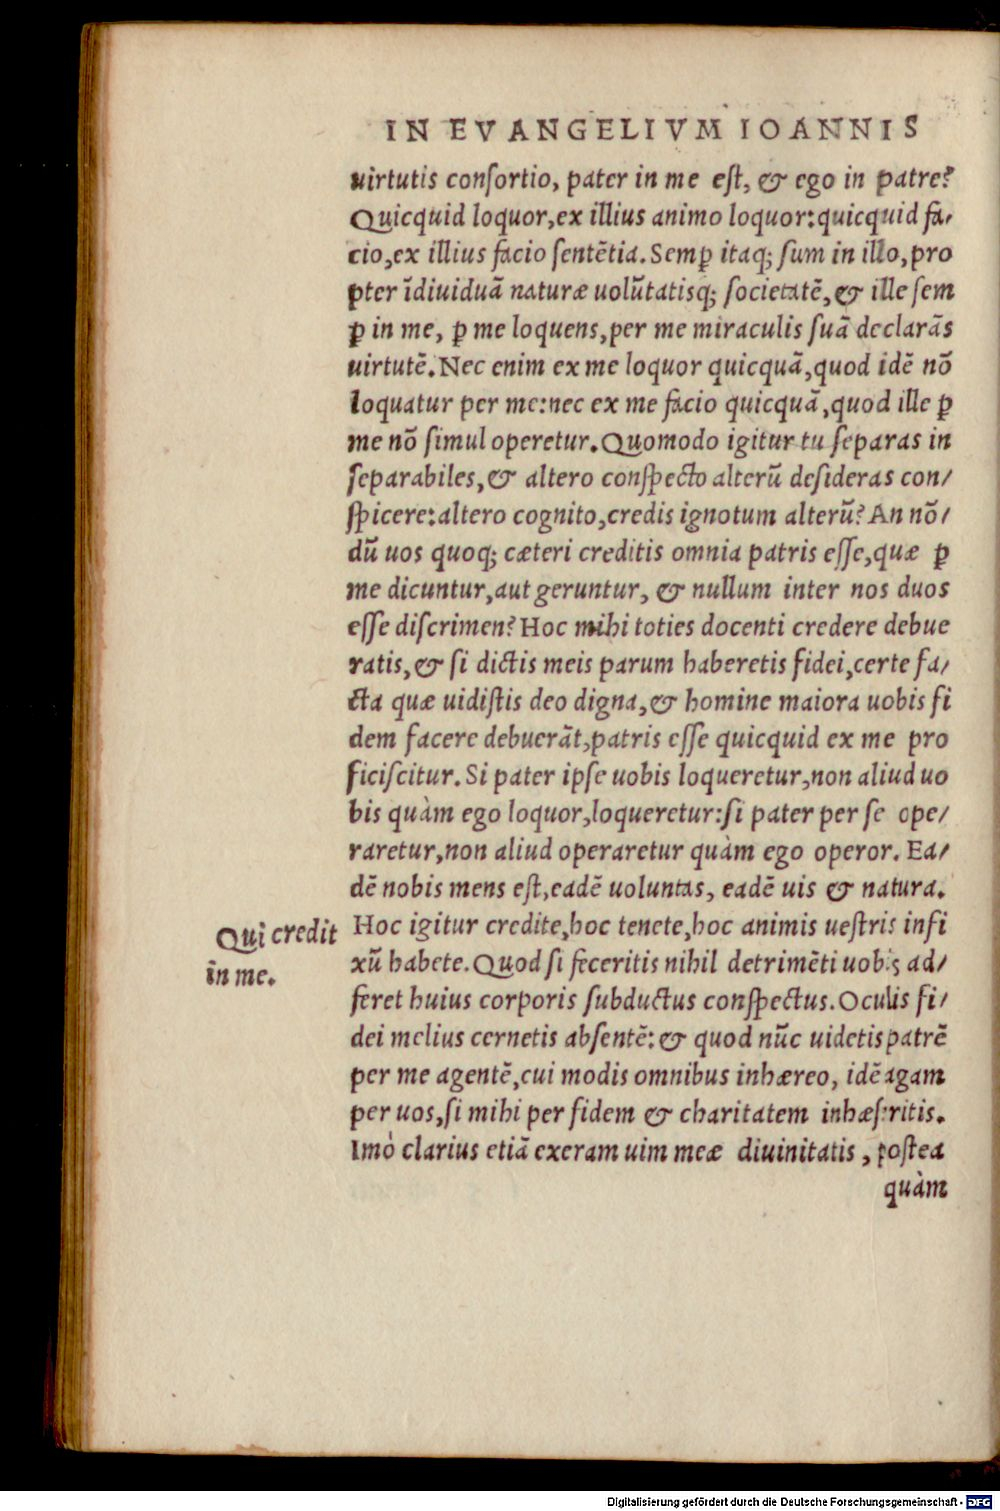 IN EVANGELIVM IOANNIS
uirtutis conſortio, pater in me eſt, & ego in patre?
Quicquid loquor, ex illius animo loquor: quicquid fa⸗
cio, ex illius facio ſentētia. Semꝑ itaq; ſum in illo, pro
pter īdiuiduā naturæ uolūtatisq; ſocietatē, & ille ſem
ꝑ in me, ꝑ me loquens, per me miraculis ſuā declarās
uirtutē. Nec enim ex me loquor quicquā, quod idē nō
loquatur per me: nec ex me facio quicquā, quod ille ꝑ
me nō ſimul operetur. Quomodo igitur tu ſeparas in
ſeparabiles, & altero conſpecto alterū deſideras con⸗
ſpicere: altero cognito, credis ignotum alterū? An nō⸗
dū uos quoq; cæteri creditis omnia patris eſſe, quæ ꝑ
me dicuntur, aut geruntur, & nullum inter nos duos
eſſe diſcrimen? Hoc mihi toties docenti credere debue
ratis, & ſi dictis meis parum haberetis fidei, certe fa⸗
cta quæ uidiſtis deo digna, & homine maiora uobis fi
dem facere debuerāt, patris eſſe quicquid ex me pro
ficiſcitur. Si pater ipſe uobis loqueretur, non aliud uo
bis quàm ego loquor, loqueretur: ſi pater per ſe ope⸗
raretur, non aliud operaretur quàm ego operor. Ea⸗
dē nobis mens eſt, eadē uoluntas, eadē uis & natura.
Hoc igitur credite, hoc tenete, hoc animis ueſtris infi
xū habete. Quod ſi feceritis nihil detrimēti uobis ad⸗
feret huius corporis ſubductus conſpectus. Oculis fi⸗
dei melius cernetis abſentē: & quod nūc uidetis patrē
per me agentē, cui modis omnibus inhæreo, idē agam
per uos, ſi mihi per fidem & charitatem inhæſeritis.
Imò clarius etiā exeram uim meæ diuinitatis, poſtea
quàm
Qui credit
in me.
Digitalisierung gefördert durch die Deutsche Forschungsgemeinschaft - DFG